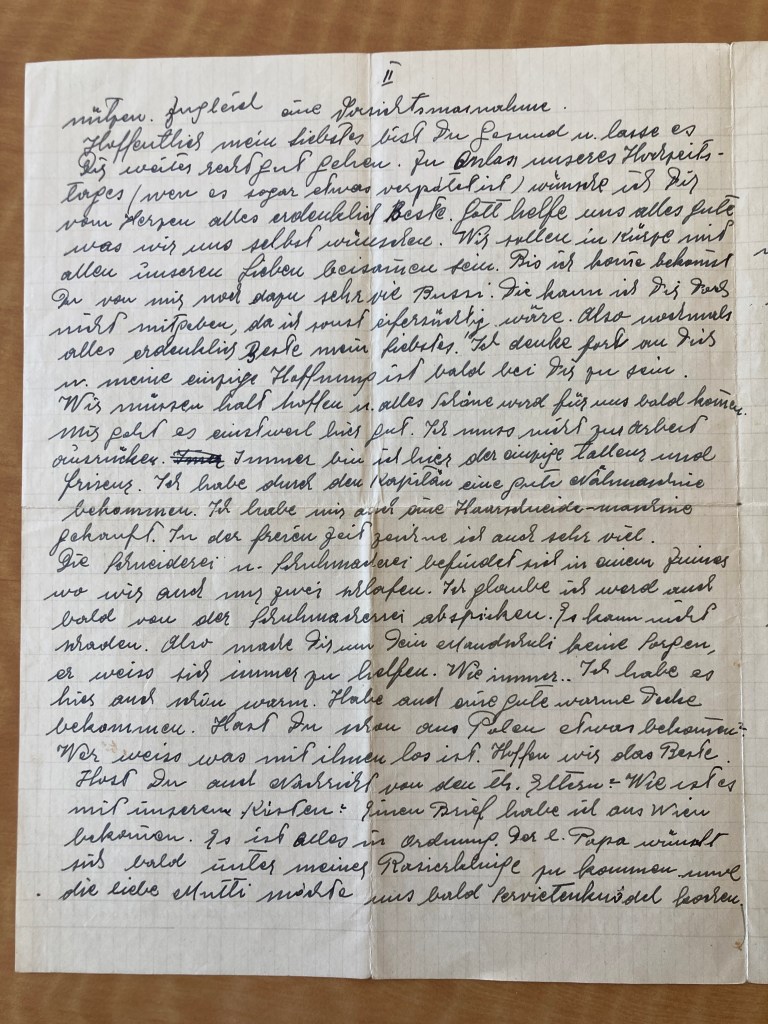 II
nützen. Zugleich eine Vorsichtsmasnahme.
Hoffentlich mein liebstes bist Du gesund u. lasse es
Dir weiter recht gut gehen. Zu Anlass unseres Hochzeits-
tages (wen es sogar etwas verpätet ist) wünsche ich Dir
vom Herzen alles erdenklich Beste. Gott helfe uns alles gute
was wir uns selbst wünschen. Wir sollen in Kürze mit
allen unseren Lieben beisamen sein. Bis ich kome bekomst
Du von mir noch dazu sehr vie Bussi. Die kann ich Dir doch
nicht mitgeben, da ich sonst eifersüchtig wäre. Also nochmals
alles erdenklich Beste mein liebstes. Ich denke fort an Dich
u. meine einzige Hoffnung ist bald bei Dir zu sein.
Wir müssen halt hoffen u. alles Schöne wird für uns bald komen.
Mir geht es einstweil hier gut. Ich muss nicht zur Arbeit
ausrücken. Immer bin ich hier der einzige und
Friseur. Ich habe durch den Kapitän eine gute Nähmaschine
bekommen. Ich habe mir auch eine Haarschneide-maschine
gekauft. In der freien Zeit zeichne ich auch sehr viel.
Die Schneiderei u. Schuhmacherei befindet sich in einem Zimer
wo wir auch nur zwei schlafen. Ich glaube ich werd auch
bald von der Schuhmacherei Es kann nicht
schaden. Also mache Dir um Dein Mandschuli keine Sorgen,
er weiss sich immer zu helfen. Wie immer.. Ich habe es
hier auch schön warm. Habe auch eine gute warme Decke
bekommen. Hast Du schon aus Polen etwas bekomen?
Wer weiss was mit ihnen los ist. Hoffen wir das Beste.
Hast Du auch Nachricht von den th. Eltern? Wie ist es
mit unseren Kisten? Einen Brief habe ich aus Wien
bekomen. Es ist alles in Ordnung. Der l. Papa wünscht
sich bald unter meiner Rasierklinge zu kommen und
die liebe Mutti möchte uns bald Servietenknödel kochen.